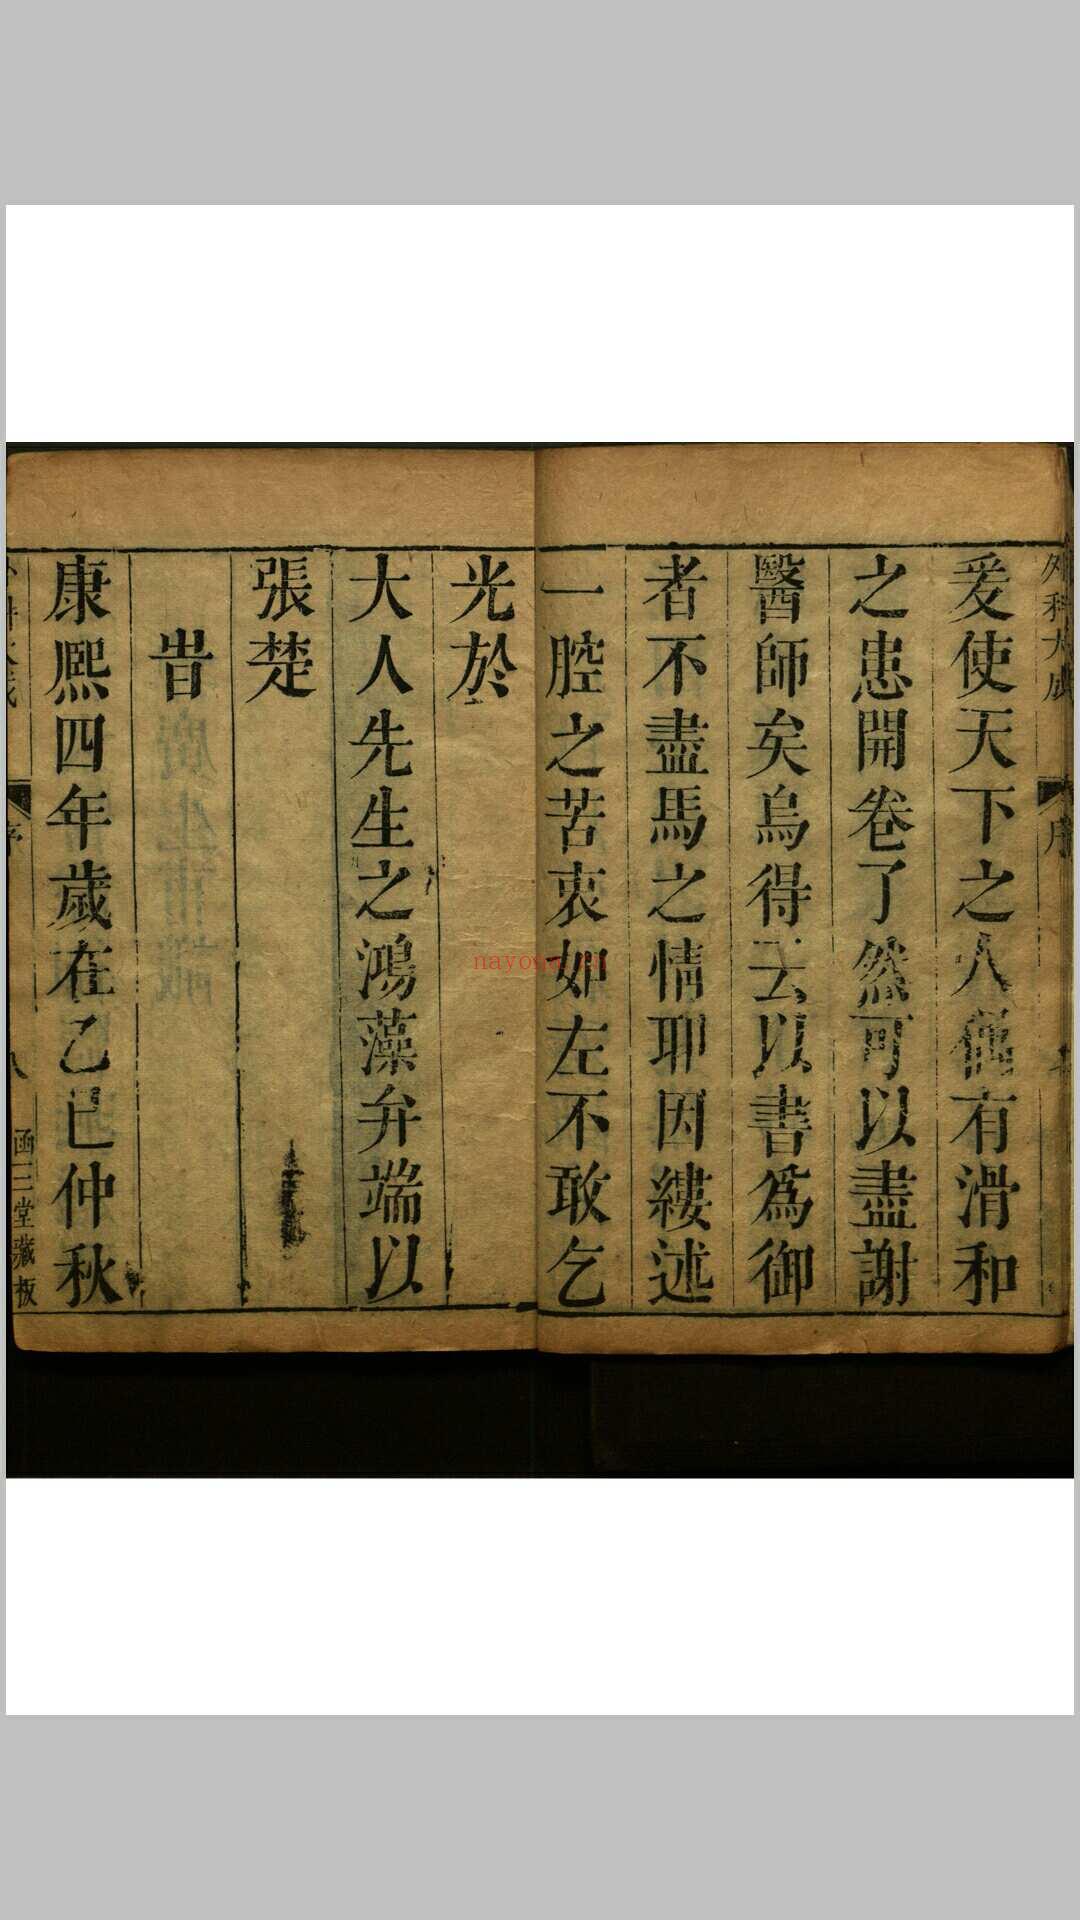 外科大成
序
爰使天下之人偶有滑和
之患開卷了然可以盡謝
醫師矣烏得云以書為御
者不盡馬之情耶因縷述
一腔之苦衷如左不敢乞
光於
大人先生之鴻藻弁端以
張楚
旹
康熙四年歲在乙巳仲秋
序
八
函三堂藏板
nayona.cn